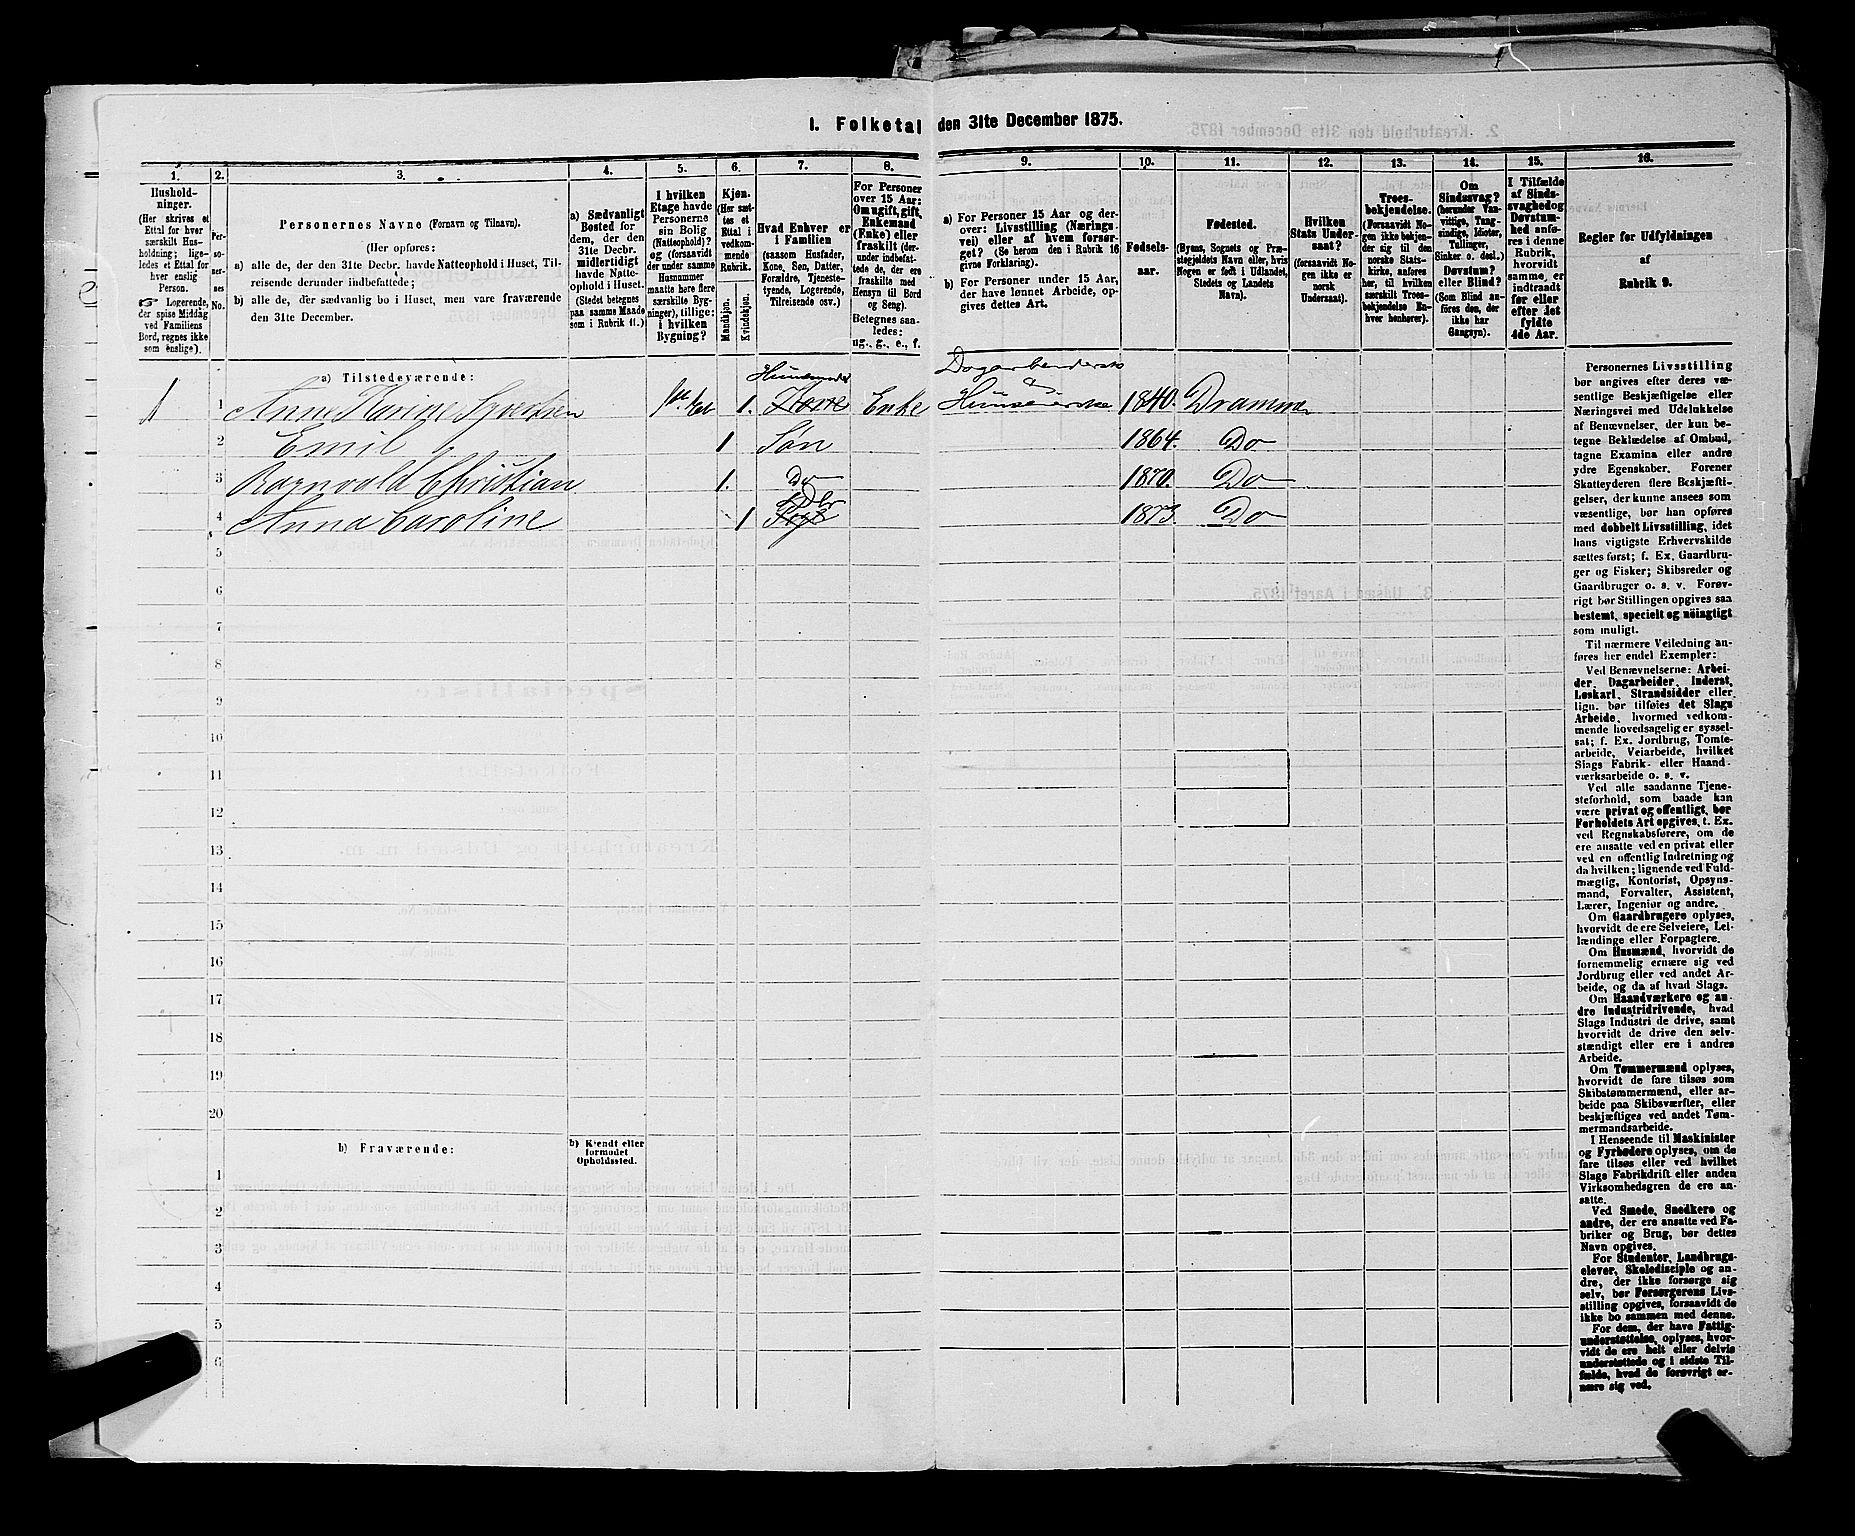 1. Folketal den 31te December 1875.
1.
2.
3.
4.
5.
6.
7.
8.
9.
10.
11.
12.
13.
14.
15.
16.
Hushold-
ninger.
(Her skrives et
Ettal for hver
særskilt Hus-
holdning; lige-
ledes et Ettal for
hver enslig
Person.
☞ Logerende,
der spise Middag
ved Familiens
Bord, regnes ikke
som enslige).
Per-
so-
ner-
nes
No.
Personernes Navne (Fornavn og Tilnavn).
(Her opføres:
a) alle de, der den 31te Decbr. havde Natteophold i Huset, Til-
reisende derunder indbefattede;
b) alle de, der sædvanlig bo i Huset, men vare fraværende
den 31te December.
a) Sædvanligt
Bosted for
dem, der den
31te Decbr.
midlertidigt
havde Natte-
ophold i Huset.
(Stedet betegnes
paa samme Maade
som i Rubrik 11.)
I hvilken
Etage havde
Personerne
sin Bolig
(Natteophold)?
og (forsaavidt
der under samme
Husnummer
maatte høre flere
særskilte Byg-
ninger), tillige:
i hvilken
Bygning?
Kjøn.
(Her sæt-
tes et
Ettal i
vedkom-
mende
Rubrik.
Mandkjøn.
Kvindekjøn.
Hvad Enhver er
i Familien
(saasom Husfader,
Kone, Søn, Datter,
Forældre, Tjeneste-
tyende, Logerende,
Tilreisende osv.)
For Personer
over 15 Aar:
Om ugift, gift,
Enkemand
(Enke) eller
fraskilt (der-
under indbefat-
tede de, der ere
fraskilte med
Hensyn til Bord
og Seng).
Betegnes saa-
ledes:
ug., g., e., f.
a) For Personer 15 Aar og der-
over: Livsstilling (Nærings-
vei) eller af hvem forsør-
get? (Se herom den i Rubrik 16
givne Forklaring).
b) For Personer under 15 Aar,
der have lønnet Arbeide, op-
gives dettes Art.
Fødsels-
aar.
Fødested.
(Byens, Sognets og Præ-
stegjeldets Navn eller, hvis
Nogen er født i Udlandet,
Stedets og Landets
Navn).
Hvilken
Stats Under-
saat?
(forsaavidt No-
gen ikke er
norsk
Undersaat).
Troes-
bekjendelse.
(Forsaavidt No-
gen ikke bekjen-
der sig til den
norske Stats-
kirke, anføres
her, til hvilken
særskilt Troes-
bekjendelse En-
hver henhører).
Om
Sindssvag?
(herunder Van-
vittige, Tung-
sindige, Idioter,
Tullinger,
Sinker o. desl.)
Døvstum?
eller Blind?
(Som Blind an-
føres den, der
ikke har
Gangsyn).
I Tilfælde
af Sinds-
svaghed og
Døvstum-
hed anfø-
res i denne
Rubrik,
hvorvidt
samme er
indtraadt
før eller
efter det
fyldte
4de Aar.
Regler for Udfyldningen
af
Rubrik 9.
a) Tilstedeværende:
1 1 Anne Karine Syvertsen 1ste Et 1. Huusmoder Kone Enke Dagarbeiderske 1840. Drammen
2 Emil 1 Søn 1864. Do
3 Ragnvald Christian 1. Do 1870. Do
4 Anna Caroline 1 Dtr 1873. Do
5
6
7
8
9
10
11
12
13
14
15
16
17
18
19
20
b) Fraværende:
b) Kjendt eller
formodet
Opholdssted.
1
2
3
4
5
6
Personernes Livsstilling
bør angives efter deres væ-
sentlige Beskjæftigelse eller
Næringsvei med Udelukkelse
af Benævnelser, der kun be-
tegne Beklædelse af Ombud,
tagne Examina eller andre
ydre Egenskaber. Forener
Skatteyderen flere Beskjæfti-
gelser, der kunne ansees som
væsentlige, bør han opføres
med dobbelt Livsstilling, idet
hans vigtigste Erhvervskilde
sættes først; f. Ex. Gaardbru-
ger og Fisker; Skibsreder og
Gaardbruger o. s. v. Forøv-
rigt bør Stillingen opgives saa
bestemt, specielt og nøiagtigt
som muligt.
Til nærmere Veiledning an-
føres her endel Exempler:
Ved Benævnelserne: Arbei-
der, Dagarbeider, Inderst,
Løskarl, Strandsidder eller
lign. bør tilføies det Slags
Arbeide, hvormed vedkom-
mende hovedsagelig er syssel-
sat; f. Ex. Jordbrug, Tomte-
arbeide, Veiarbeide, hvilket
Slags Fabrik- eller Haand-
værksarbeide o. s. v.
Ved alle saadanne Tjene-
steforhold, som baade kan
være privat og offentligt, bør
Forholdets Art opgives, t. Ex.
ved Regnskabsførere, om de
ere ansatte ved en privat eller
ved en offentlig Indretning og
da hvilken; lignende ved Fuld-
mægtig, Kontorist, Opsyns-
mand, Forvalter, Assistent,
Lærer, Ingeniør og andre.
Om Gaardbrugere oplyses,
hvorvidt de ere Selveiere, Lei-
lændinge eller Forpagtere.
Om Husmænd, hvorvidt de
fornemmelig ernære sig ved
Jordbrug eller ved andet Ar-
beide, og da af hvad Slags.
Om Haandværkere og an-
dre Industridrivende, hvad
Slags Industri de drive, samt
hvorvidt de drive den selv-
stændigt eller ere i andres
Arbeide.
Om Tømmermænd oplyses,
hvorvidt de fare tilsøs som
Skibstømmermænd, eller ar-
beide paa Skibsværfter, eller
beskjæftiges ved andet Tøm-
mermandsarbeide.
I Henseende til Maskinister
og Fyrbødere oplyses, om de
fare tilsøs eller ved hvilket
Slags Fabrikdrift eller anden
Virksomhedsgren de ere an-
satte.
Ved Smede, Snedkere og
andre, der ere ansatte ved Fa-
briker og Brug, bør dettes
Navn opgives.
For Studenter, Landbrugs-
elever, Skoledisciple og an-
dre, der ikke forsørge sig
selv, bør Forsørgerens Livs-
stilling opgives, forsaavidt de
ikke bo sammen med denne.
For dem, der have Fattig-
understøttelse, oplyses, hvor-
vidt de ere helt eller delvis
understøttede og i sidste Til-
fælde, hvad de forøvrigt er-
nære sig ved.